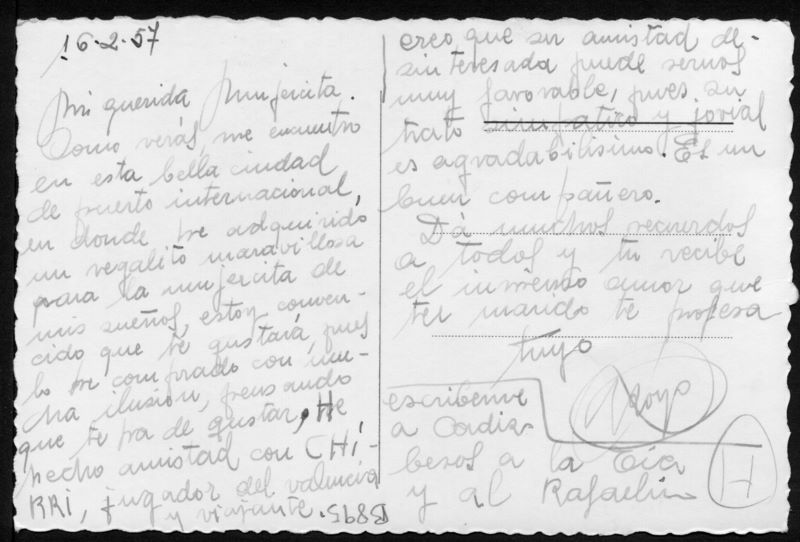 16-2-57
Mi querida Mujercita.
Como verás, me encuentro
en esta bella ciudad
de puerto internacional,
en donde he adquirido
un regalito maravilloso
para la mujercita de
mis sueños, estoy conven-
cido que te gustará, pues
lo he comprado con mu-
cha ilusión, pensando
que te ha de gustar, He
hecho amistad con CHÍ-
RRI, jugador del valencia
y viajante.
B895
creo que su amistad de-
sinteresada puede sernos
muy favorable, pues su
trato simpatico y jovial
es agradabilisimo. Es un
buen compañero.
Dá muchos recuerdos
a todos y tu recibe
el inmenso amor que
tu marido te profesa
tuyo
escribenme
a Cadiz
besos a la Tia
y al Rafaelin
H